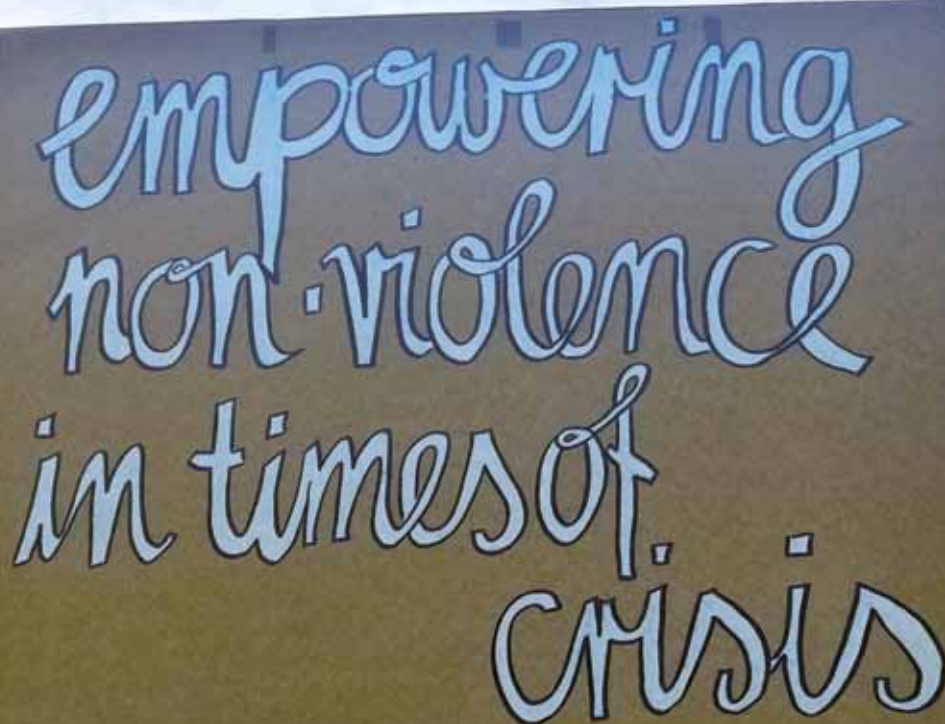 empowering
non-violence
in times of
crisis